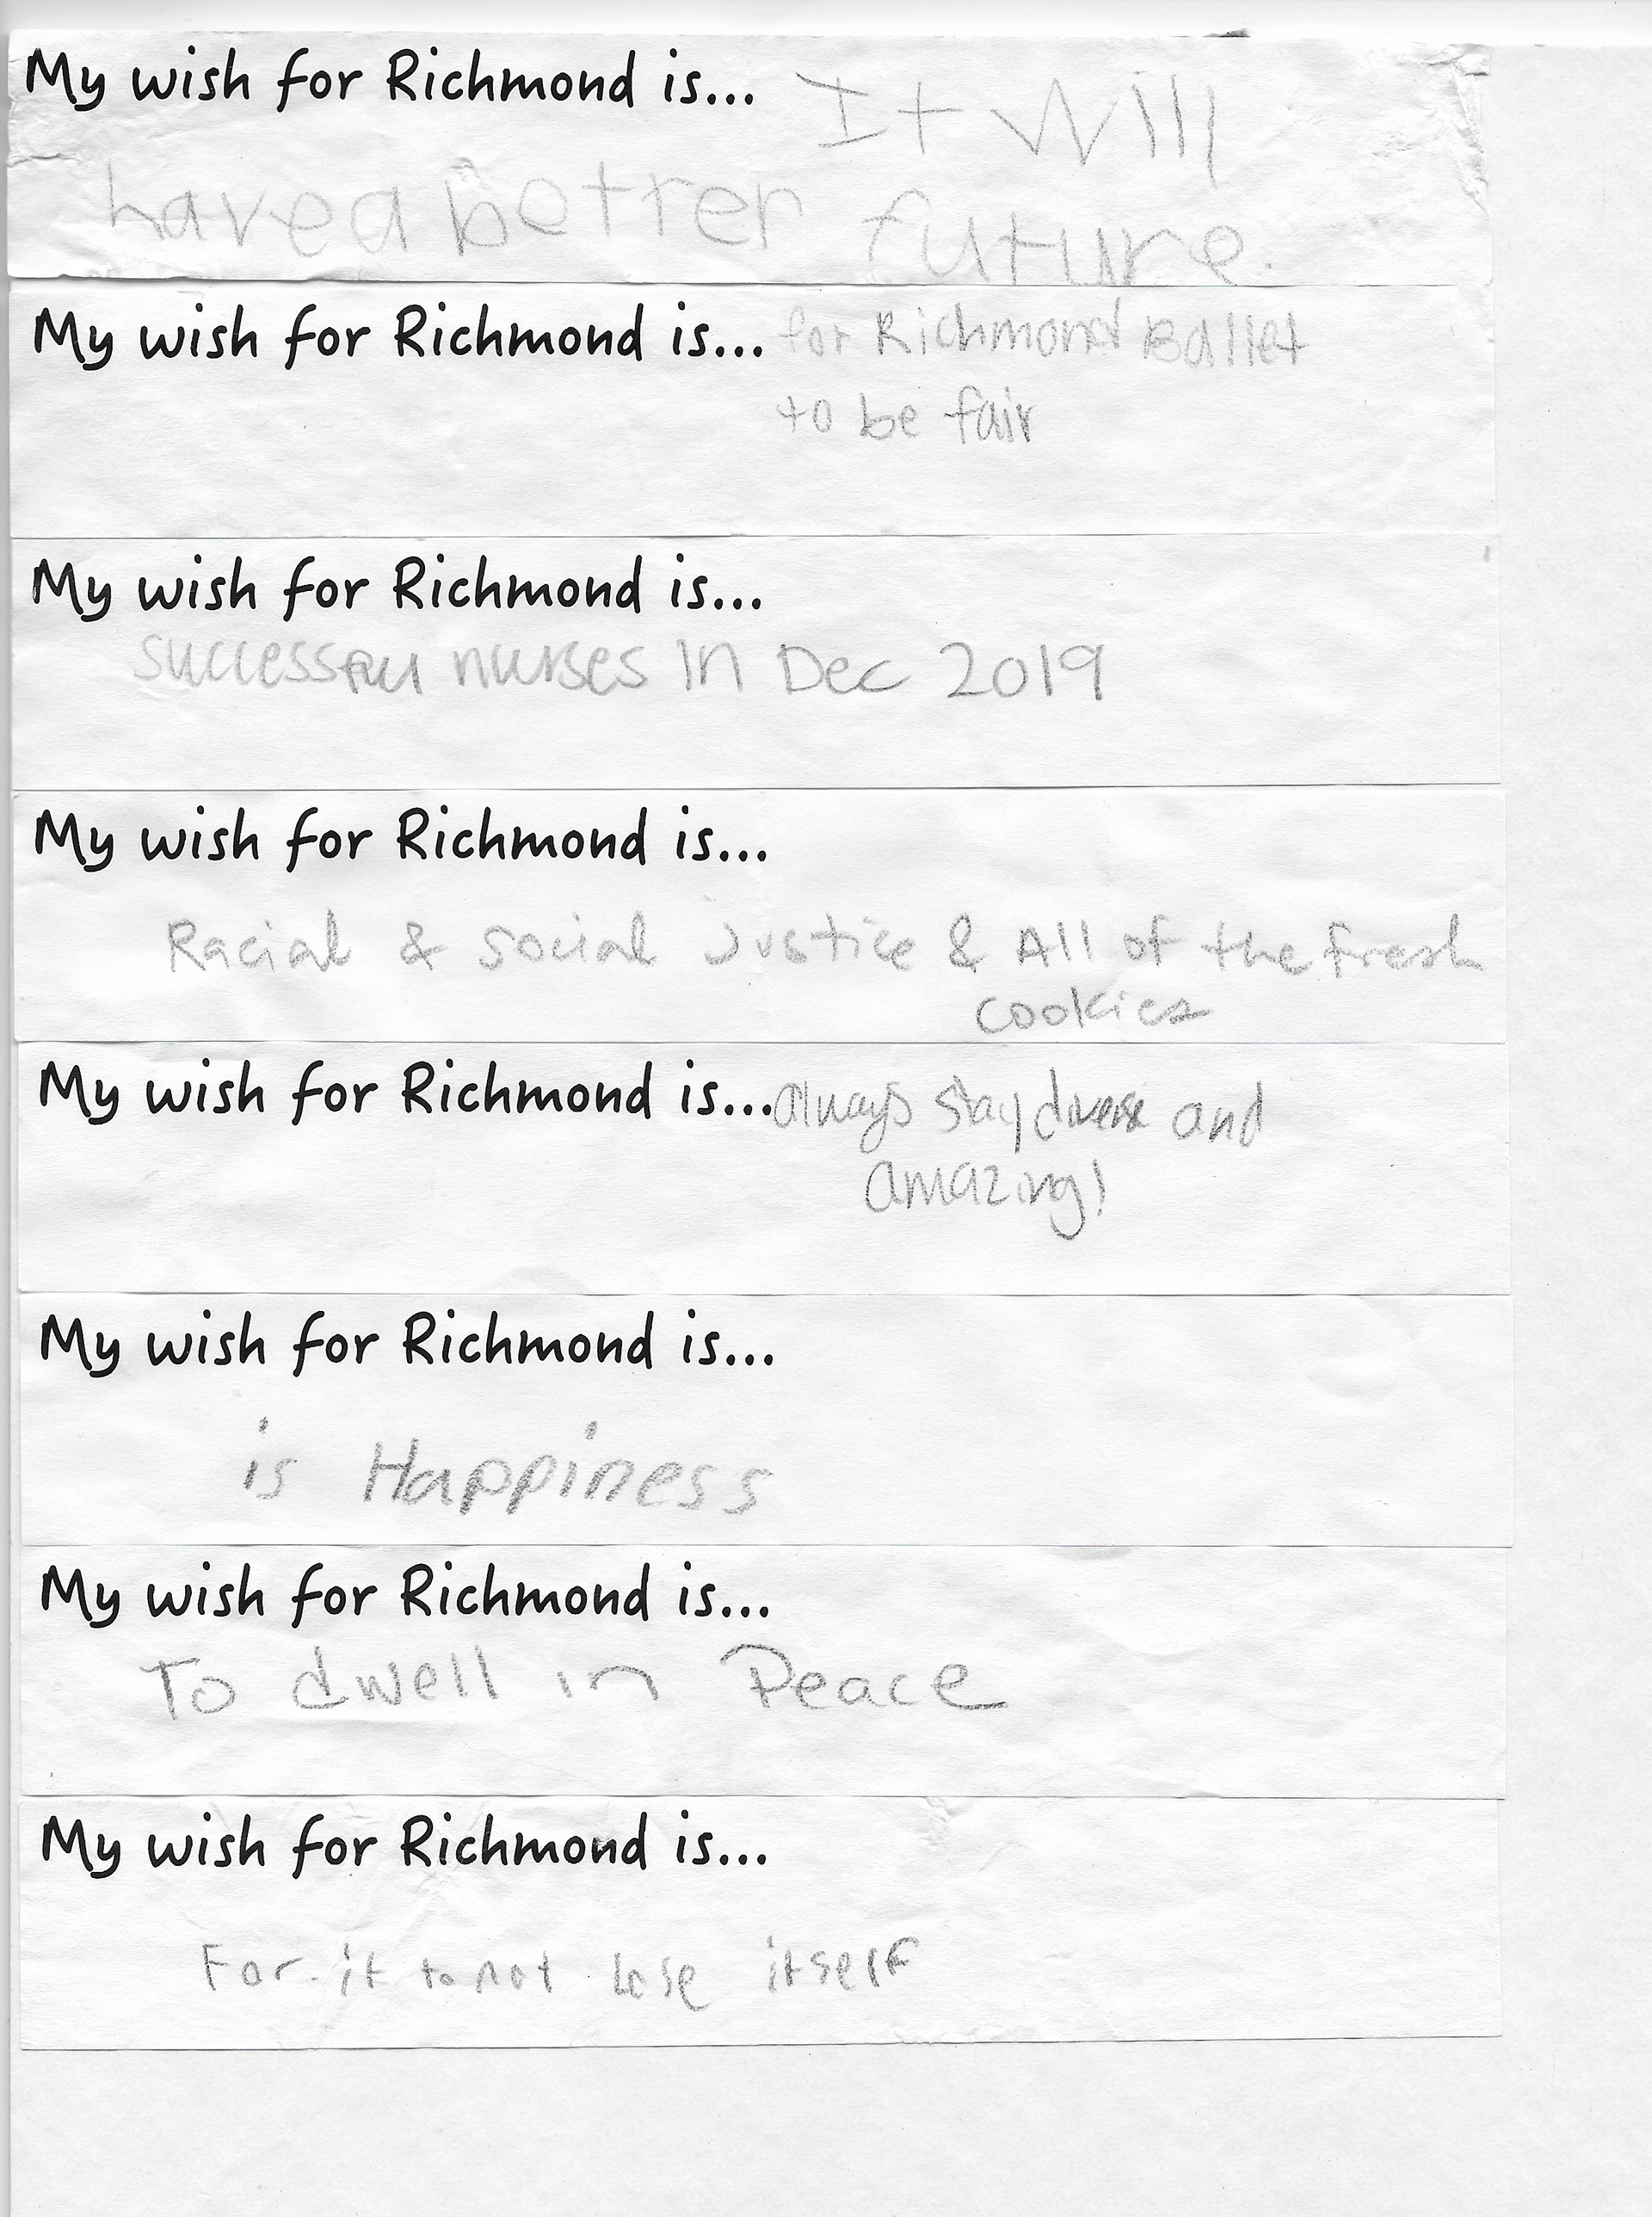 My wish for Richmond is... It will
have a better future.
My wish for Richmond is... for Richmond Ballet
to be fair
My wish for Richmond is...
successful nurses in Dec 2019
My wish for Richmond is...
Racial & Social Justice & All of the fresh
cookies
My wish for Richmond is... always stay diverse and
amazing!
My wish for Richmond is...
is Happiness
My wish for Richmond is...
To dwell in Peace
My wish for Richmond is...
For it to not lose itself